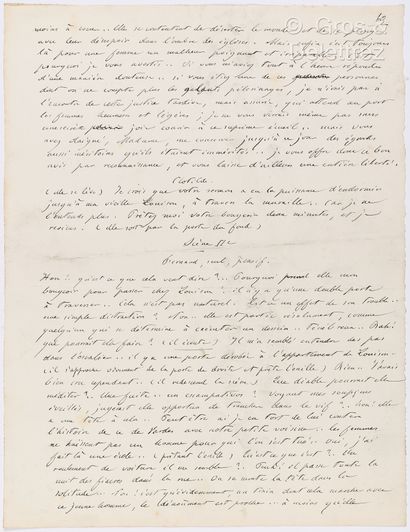 moins à cause.. Elle se contentait de déserter le monde et de se réfugier
avec leur désespoir dans l'ombre des églises. Mais enfin c'est toujours
là pour une femme un malheur poignant et irréparable
pourquoi je vous avertis.. Si vous m'aviez tout à l'heure répondu
d'une manière douteuse.. si vous étiez une de ces personnes
dont on ne compte plus les galants pèlerinages, je n'irais pas à
l'encontre de cette justice tardive, mais assurée, qui attend au port
les femmes et légères, je ne vous verrais même pas sans
une joie courir à ce suprême écueil.. mais vous
avez daigné, Madame, me concevoir jusqu'à ce jour des égards
aussi méritoires qu'ils étaient immérités.. je vous offre donc ce bon
avis par reconnaissance, et vous laisse d'ailleurs une entière liberté!
Clotilde.
(elle se lève) Je crois que votre sermon a eu la puissance d'endormir
jusqu'à ma vieille Louison, à travers la muraille.. car je ne
l'entends plus. Prêtez moi votre bougeoir deux minutes, et je
reviens. (elle sort par la porte du fond)
Scène IIe
Fernand, seul, pensif.
Hon! qu'est ce que cela veut dire?.. Pourquoi prend elle mon
bougeoir pour passer chez Louison? il n'y a qu'une double porte
à traverser.. cela n'est pas naturel. Est-ce un effet de son trouble..
une simple distraction? Non.. elle est partie résolument, comme
quelqu'un qui se détermine à exécuter un dessein.. Bah!
que pourrait elle faire? (il écoute) Il m'a semblé entendre des pas
dans l'escalier.. il y a une porte dérobée à l'appartement de Louison
(il s'approche vivement de la porte de droite et prête l'oreille) Rien.. J'avais
bien cru cependant.. (il redescend la scène) Que diable pourrait elle
méditer?.. Une fuite.. un Voyant mes soupçons
éveillés, jugerait elle opportun de trancher dans le vif?.. hum! elle
a une tête à cela.. Peut être ai je eu tort de lui conter
l'histoire de ce de avec notre petite voisine.. les femmes
ne haïssent pas un homme pour qui l'on s'est tué.. oui, j'ai
fait là une école.. (prêtant l'oreille) Qu'est ce que c'est?.. Un
roulement de voiture il me semble?.. Bah! il passe toute la
nuit des fiacres dans la rue.. On se monte la tête dans la
solitude.. c'est qu'évidemment, au train dont cela marche avec
ce jeune homme, le dénouement est proche.. à moins qu'elle